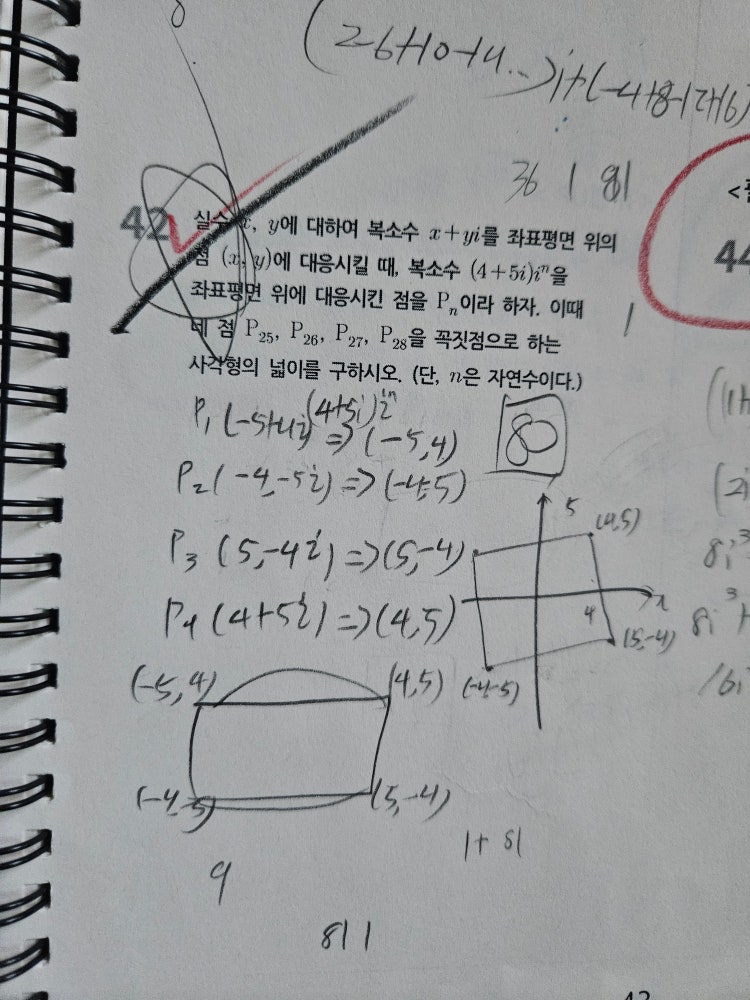 (2-6+10-14...)i+(-4+8-12+16)
36 1 81
42
실수 x, y에 대하여 복소수 x+yi를 좌표평면 위의
점 (x, y)에 대응시킬 때, 복소수 (4+5i)iⁿ을
좌표평면 위에 대응시킨 점을 Pₙ이라 하자. 이때
네 점 P₂₅, P₂₆, P₂₇, P₂₈을 꼭짓점으로 하는
사각형의 넓이를 구하시오. (단, n은 자연수이다.)
44
1
(4+5i)iⁿ
P₁ (-5+4i) => (-5,4)
80
P₂ (-4,-5i) => (-4,-5)
P₃ (5,-4i) => (5,-4)
P₄ (4+5i) => (4,5)
5
(4,5)
x
4
(5,-4)
(-4,-5)
(2i
8i³
8i³+
16i
(-5,4)
(4,5)
(-4,-5)
(5,-4)
1+81
9
81 1